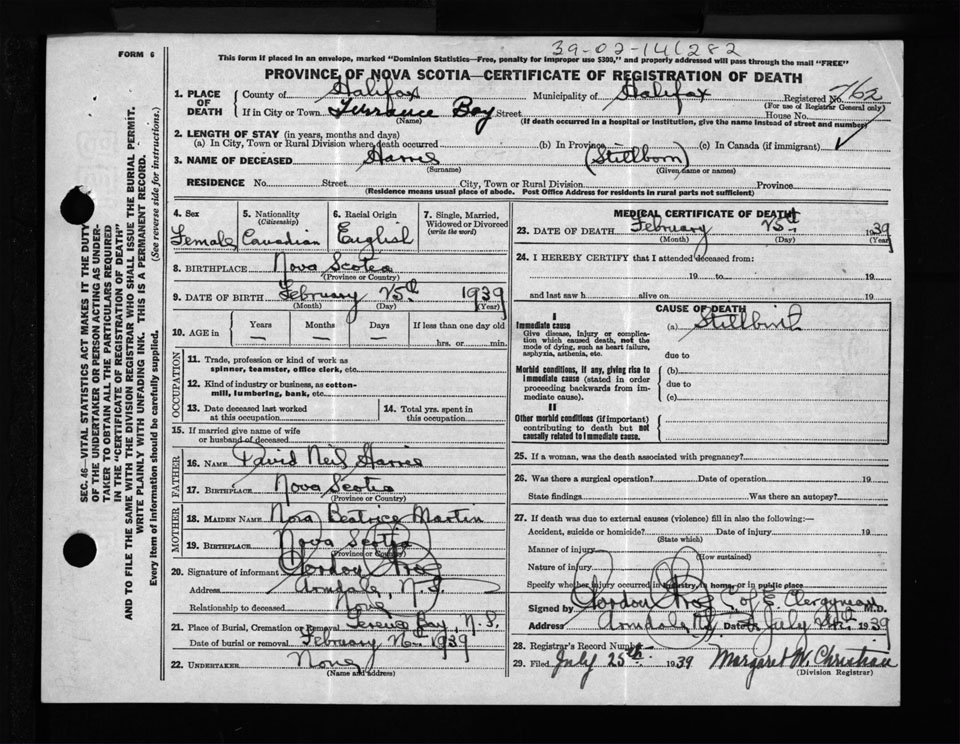 39-02-141282
FORM 6
This form if placed in an envelope, marked "Dominion Statistics—Free, penalty for improper use $300," and properly addressed will pass through the mail "FREE"
PROVINCE OF NOVA SCOTIA—CERTIFICATE OF REGISTRATION OF DEATH
1. PLACE OF DEATH County of Halifax Municipality of Halifax Registered No. 762
(For use of Registrar General only)
If in City or Town Terrence Bay Street House No.
(Name) (If death occurred in a hospital or institution, give the name instead of street and number)
2. LENGTH OF STAY (in years, months and days)
(a) In City, Town or Rural Division where death occurred (b) In Province (c) In Canada (if immigrant)
3. NAME OF DECEASED Harris (Stillborn)
(Surname) (Given name or names)
RESIDENCE No. Street City, Town or Rural Division Province
(Residence means usual place of abode. Post Office Address for residents in rural parts not sufficient)
4. Sex Female
5. Nationality (Citizenship) Canadian
6. Racial Origin English
7. Single, Married, Widowed or Divorced (write the word)
8. BIRTHPLACE Nova Scotia
(Province or Country)
9. DATE OF BIRTH February 25th 1939
(Month) (Day) (Year)
10. AGE in Years Months Days If less than one day old
— — — hrs. or min.
OCCUPATION
11. Trade, profession or kind of work as spinner, teamster, office clerk, etc.
12. Kind of industry or business, as cotton-mill, lumbering, bank, etc.
13. Date deceased last worked at this occupation
14. Total yrs. spent in this occupation
15. If married give name of wife or husband of deceased
FATHER
16. NAME David Neil Harris
17. BIRTHPLACE Nova Scotia
(Province or Country)
MOTHER
18. MAIDEN NAME Nora Beatrice Martin
19. BIRTHPLACE Nova Scotia
(Province or Country)
20. Signature of informant Gordon
Address Armdale, N.S.
Relationship to deceased None
21. Place of Burial, Cremation or Removal Terence Bay, N.S.
Date of burial or removal February 26th 1939
22. UNDERTAKER None
(Name and address)
MEDICAL CERTIFICATE OF DEATH
23. DATE OF DEATH February 25th 1939
(Month) (Day) (Year)
24. I HEREBY CERTIFY that I attended deceased from:
19 to 19
and last saw h alive on 19
CAUSE OF DEATH
I
Immediate cause
Give disease, injury or complication which caused death, not the mode of dying, such as heart failure, asphyxia, asthenia, etc.
(a) Stillbirth
due to
Morbid conditions, if any, giving rise to immediate cause (stated in order proceeding backwards from immediate cause).
(b)
due to
(c)
II
Other morbid conditions (if important) contributing to death but not causally related to immediate cause.
25. If a woman, was the death associated with pregnancy?
26. Was there a surgical operation? Date of operation 19
State findings Was there an autopsy?
27. If death was due to external causes (violence) fill in also the following:—
Accident, suicide or homicide? Date of injury 19
(State which)
Manner of injury
(How sustained)
Nature of injury
Specify whether injury occurred in industry, in home, or in public place
Signed by Gordon C. of E. Clergyman M.D.
Address Armdale, N.S. Date July 1939
28. Registrar's Record Number
29. Filed July 25th 1939 Margaret W. Christian
(Division Registrar)
SEC. 46—VITAL STATISTICS ACT MAKES IT THE DUTY
OF THE UNDERTAKER OR PERSON ACTING AS UNDER-
TAKER TO OBTAIN ALL THE PARTICULARS REQUIRED
IN THE "CERTIFICATE OF REGISTRATION OF DEATH"
AND TO FILE THE SAME WITH THE DIVISION REGISTRAR WHO SHALL ISSUE THE BURIAL PERMIT.
WRITE PLAINLY WITH UNFADING INK. THIS IS A PERMANENT RECORD.
Every item of information should be carefully supplied. (See reverse side for instructions.)